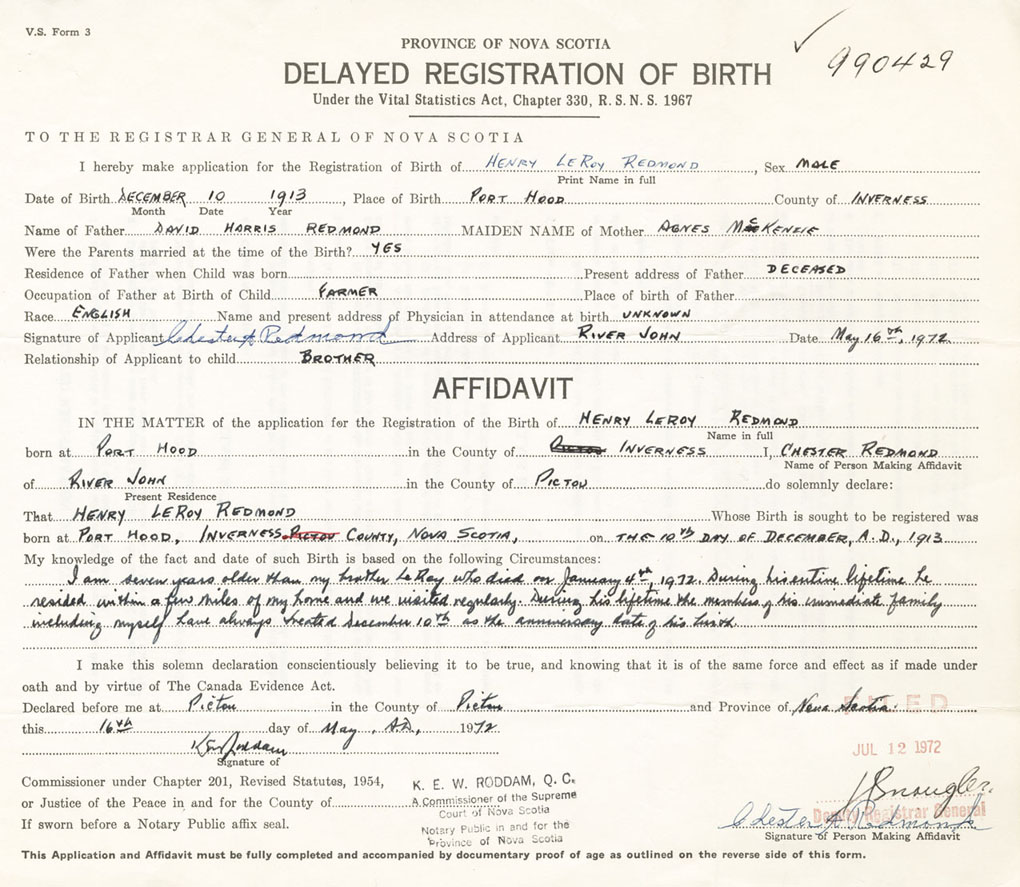 V.S. Form 3
PROVINCE OF NOVA SCOTIA
990429
DELAYED REGISTRATION OF BIRTH
Under the Vital Statistics Act, Chapter 330, R.S.N.S. 1967
TO THE REGISTRAR GENERAL OF NOVA SCOTIA
I hereby make application for the Registration of Birth of HENRY LEROY REDMOND, Sex MALE
Print Name in full
Date of Birth DECEMBER 10 1913, Place of Birth PORT HOOD County of INVERNESS
Month Date Year
Name of Father DAVID HARRIS REDMOND MAIDEN NAME of Mother AGNES MacKENZIE
Were the Parents married at the time of the Birth? YES
Residence of Father when Child was born Present address of Father DECEASED
Occupation of Father at Birth of Child FARMER Place of birth of Father
Race ENGLISH Name and present address of Physician in attendance at birth UNKNOWN
Signature of Applicant Chester A Redmond Address of Applicant RIVER JOHN Date May 16th, 1972
Relationship of Applicant to child BROTHER
AFFIDAVIT
IN THE MATTER of the application for the Registration of the Birth of HENRY LEROY REDMOND
Name in full
born at PORT HOOD in the County of INVERNESS I, CHESTER REDMOND
Name of Person Making Affidavit
of RIVER JOHN in the County of PICTOU do solemnly declare:
Present Residence
That HENRY LEROY REDMOND Whose Birth is sought to be registered was
born at PORT HOOD, INVERNESS PICTOU COUNTY, NOVA SCOTIA, on THE 10th DAY OF DECEMBER, A.D., 1913
My knowledge of the fact and date of such Birth is based on the following Circumstances:
I am seven years older than my brother LeRoy who died on January 4th, 1972. During his entire lifetime he
resided within a few miles of my home and we visited regularly. During his lifetime the members of his immediate family
including myself have always treated December 10th as the anniversary date of his birth.
I make this solemn declaration conscientiously believing it to be true, and knowing that it is of the same force and effect as if made under
oath and by virtue of The Canada Evidence Act.
Declared before me at Pictou in the County of Pictou and Province of Nova Scotia
FILED
this 16th day of May, A.D., 1972
JUL 12 1972
Signature of
Commissioner under Chapter 201, Revised Statutes, 1954,
or Justice of the Peace in and for the County of
If sworn before a Notary Public affix seal.
K. E. W. RODDAM, Q. C.
A Commissioner of the Supreme
Court of Nova Scotia
Notary Public in and for the
Province of Nova Scotia
Deputy Registrar General
Chester A Redmond
Signature of Person Making Affidavit
This Application and Affidavit must be fully completed and accompanied by documentary proof of age as outlined on the reverse side of this form.